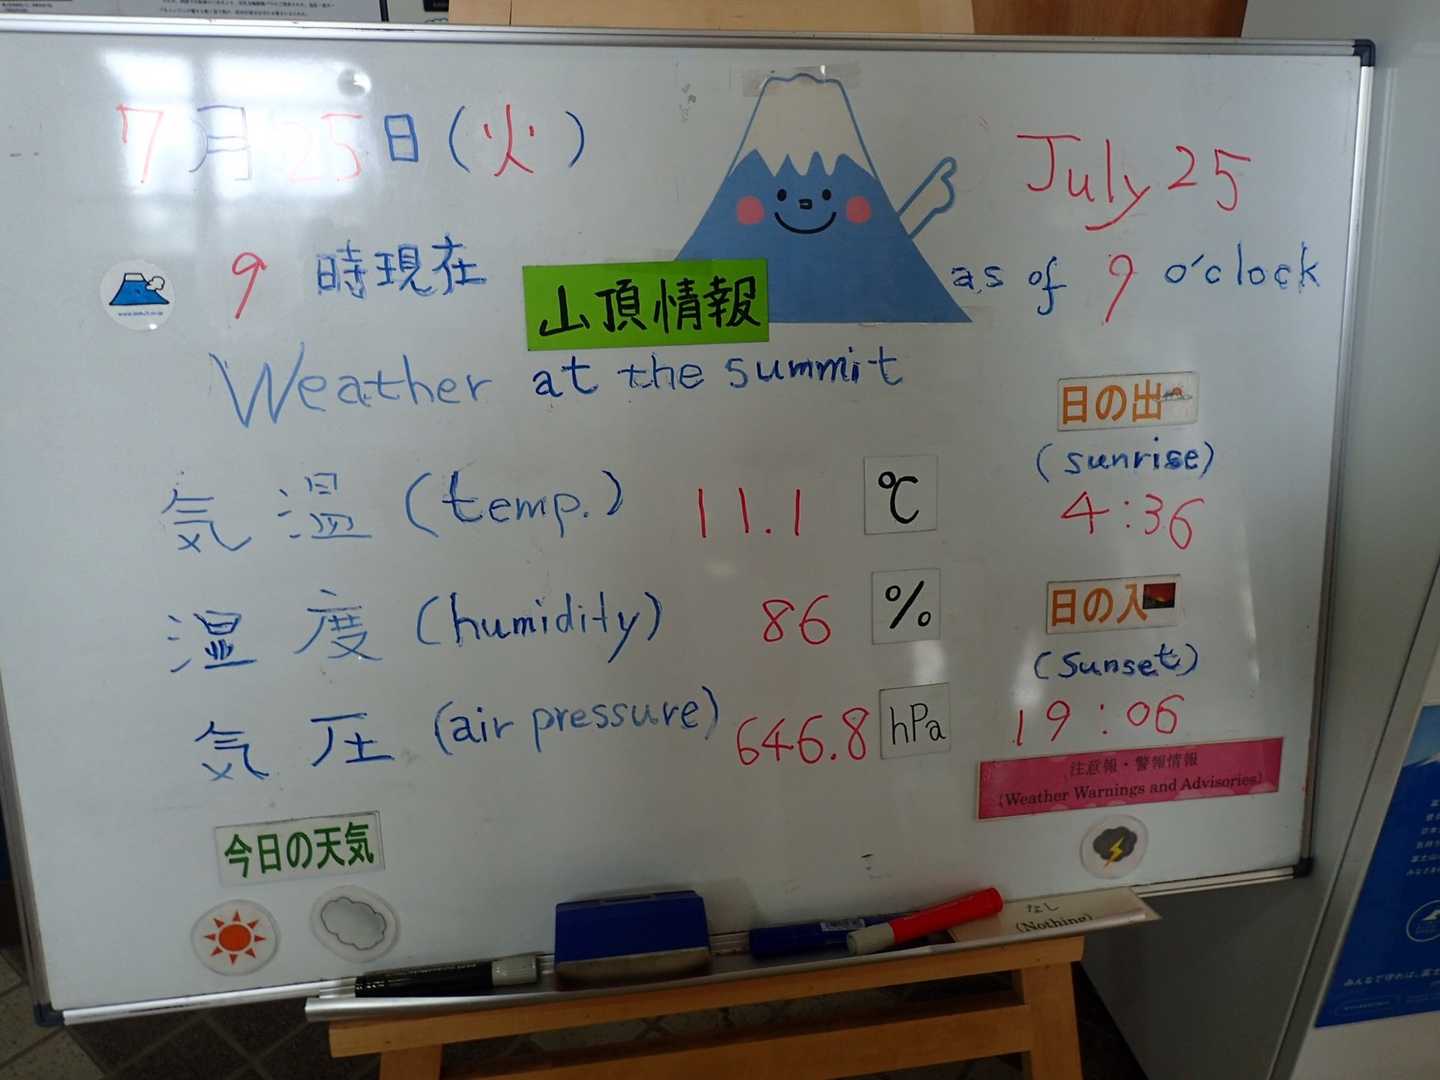 7月25日(火)
July 25
9 時現在
as of 9 o'clock
山頂情報
Weather at the summit
気温(temp.) 11.1 ℃
湿度(humidity) 86 %
気圧(air pressure) 646.8 hPa
日の出
(sunrise)
4:36
日の入
(Sunset)
19:06
注意報・警報情報
(Weather Warnings and Advisories)
今日の天気
なし
(Nothing)